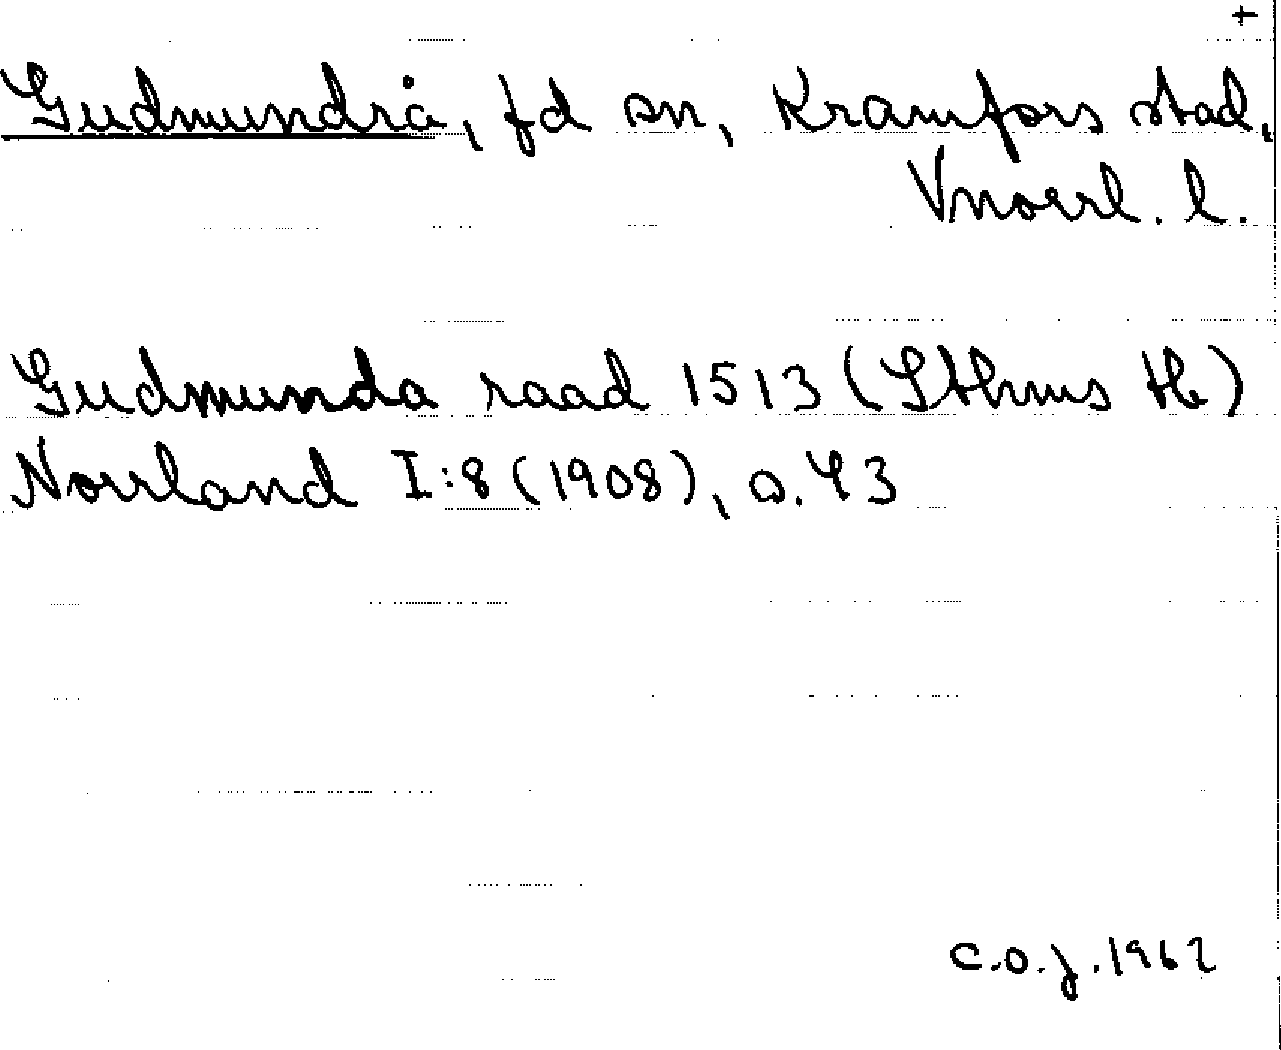 +
Gudmundrå, fd sn, Kramfors stad,
Vnorrl. l.
Gudmunda raad 1513 (Sthms tb)
Norrland I:8 (1908), s. 43
C.O.J. 1962